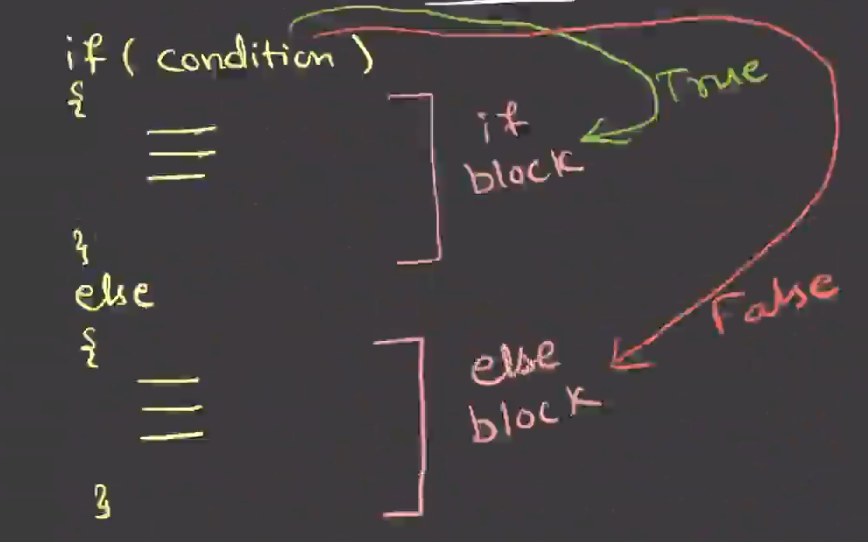 if ( condition )
{
if
block
True
}
else
{
else
block
False
}